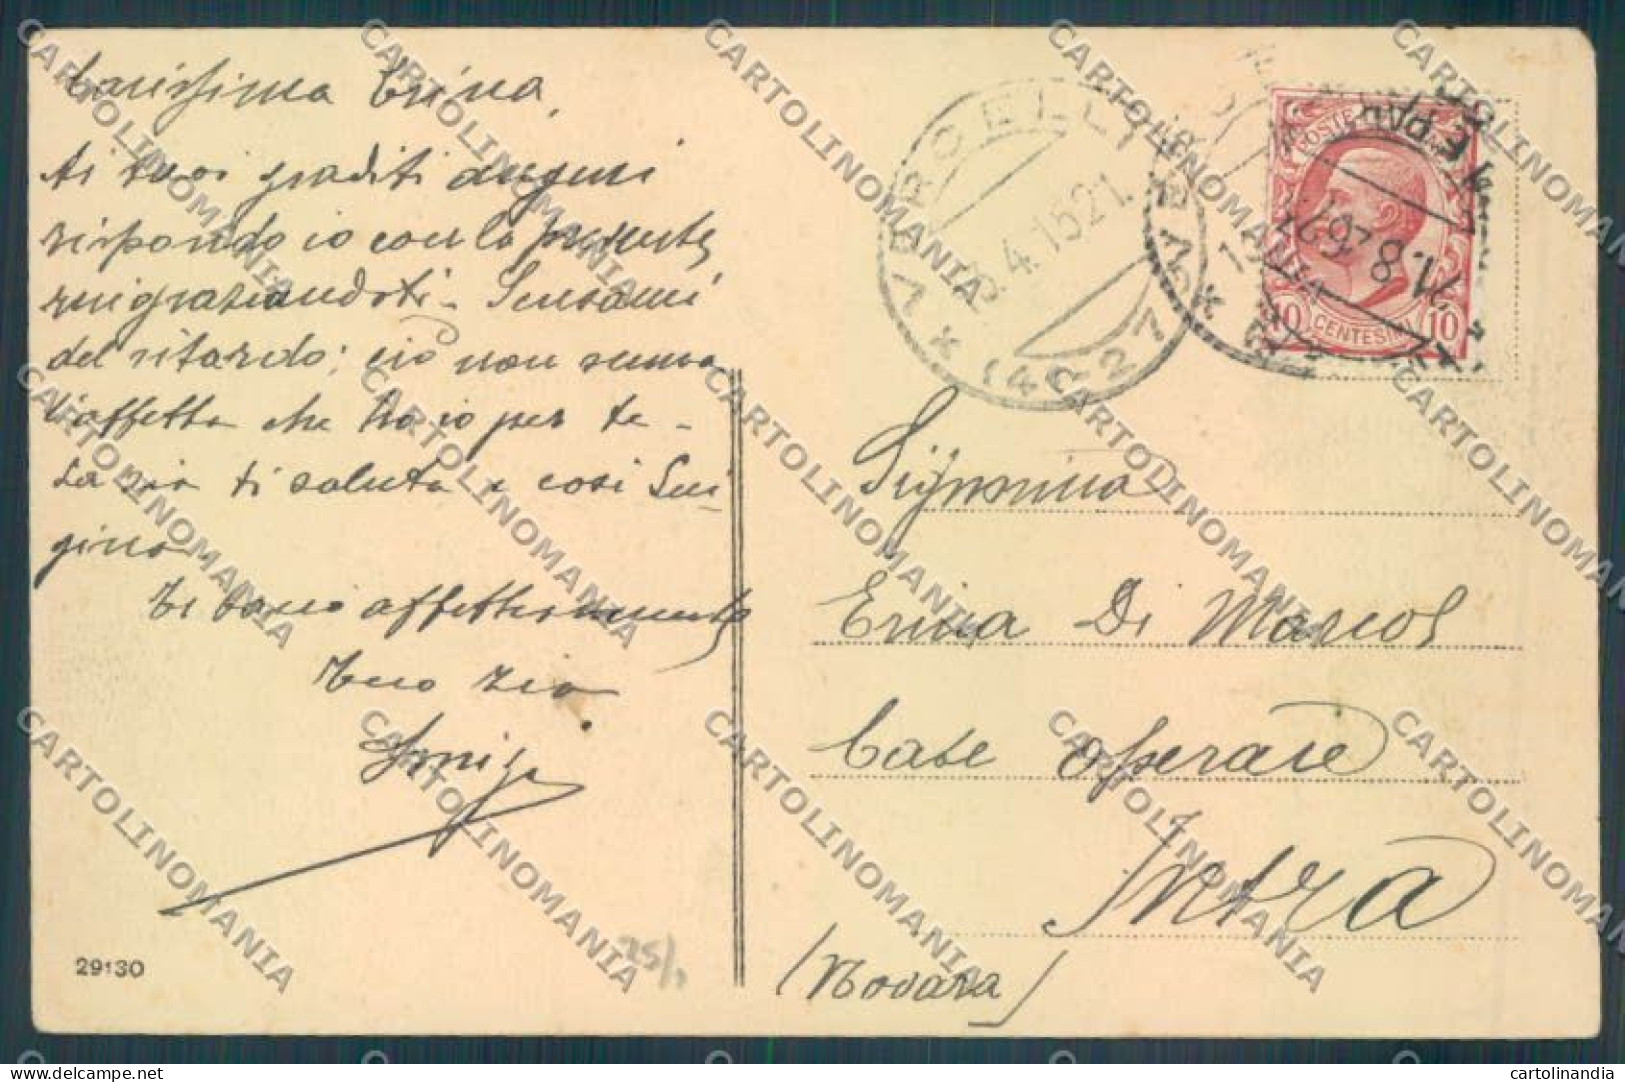 Carissima Erina,
Ai tuoi graditi auguri
rispondo io con la presente
ringraziandoti. Scusami
del ritardo; ciò non scema
l'affetto che ho io per te.
La zia ti saluta e così Lui
gino
Ti bacio affettuosamente
tuo zio
29130
VERCELLI
4.15 21
* (42-27) *
POSTE
10 CENTESIMI 10
Signorina
Erina Di Marcol
Case Operaie
Intra
(Novara)
CARTOLINOMANIA
www.delcampe.net
cartolinandia